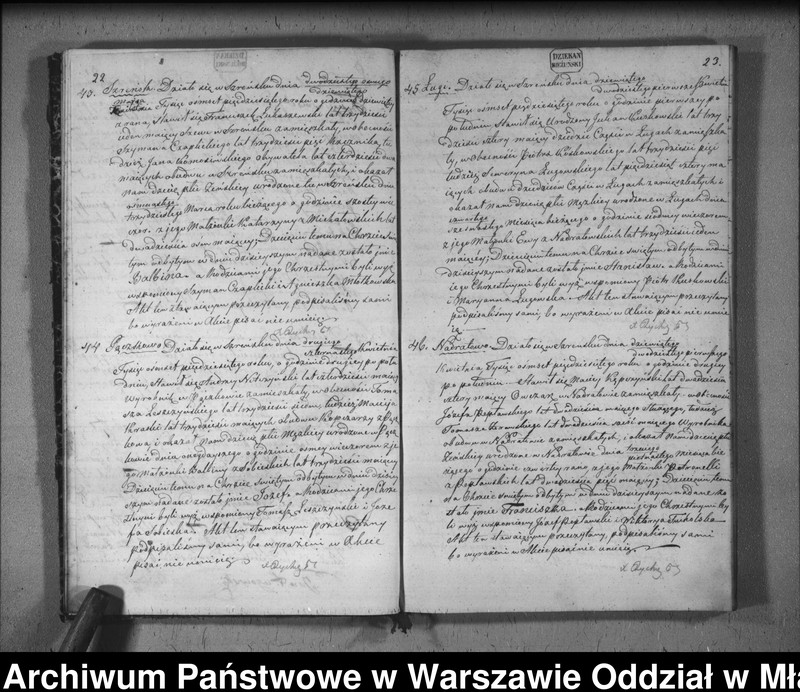 22
43. Szreńsk. Działo się w Szreńsku dnia
Tysiąc osmset pięćdziesiątego roku o godzinie dziewiątej
z rana, Stawił się Franciszek Łukaszewski lat trzydzieści
jeden mający Szewc w Szreńsku zamieszkały, w obecności
Szymana Czaplickiego lat trzydzieści pięć
dzież Jana obywatela lat czterdzieści dwa
mających obudwu w Szreńsku zamieszkałych, i okazał
nam dziecię płci żeńskiej urodzone tu w Szreńsku dnia
trzydziestego Marca roku bieżącego o godzinie szóstej wie-
czor. z jego Małżonki Katarzyny z Michałowskich lat
dwadzieścia ośm mającej; Dziecięciu temu na Chrzcie Świę-
tym odbytym w dniu dzisiejszym nadane zostało imie
Balbina a Rodzicami jego Chrzestnymi byli wyż
wspomniony Szyman Czaplicki i Agnieszka Młotkowska
Akt ten stawającym przeczytany, podpisaliśmy sami
bo wyrażeni w Akcie pisać nie umieją
44 Pączkowo Działo się w Szreńsku dnia drugiego
czternastego Kwietnia
Tysiąc osmset pięćdziesiątego roku, o godzinie drugiej po połu-
dniu, Stawił się Andrzej lat czterdzieści mający
Wyrobnik w Pączkowie zamieszkały, w obecności Toma-
sza Leszczyńskiego lat trzydzieści siedem, tudzież Macieja
lat trzydzieści mających obudwu
kowa; i okazał nam dziecię płci Męzkiej urodzone w Pącz-
kowie dnia onegdajszego o godzinie osmej wieczorem z je-
go Małżonki Balbiny z Sobieskich lat trzydzieści mającej
Dziecięciu temu na Chrzcie Świętym odbytym w dniu dzisiej-
szym nadane zostało imie Józef a Rodzicami jego Chrze-
stnymi byli wyż wspomniony Tomasz Leszczyński i Joze-
fa Sobieska. Akt ten stawającym przeczytany
podpisaliśmy sami, bo wyrażeni w Akcie
pisać nie umieją
DZIEKAN
23.
45 Ługi. Działo się w Szreńsku dnia dziewiątego
dwudziestego pierwszego Kwietnia
Tysiąc osmset pięćdziesiątego roku o godzinie pierwszej po
południu Stawił się Urodzony Julian Kuskowski lat trzy-
dzieści cztery mający dziedzic Części w Ługach zamieszka-
ły, w obecności Piotra Kuskowskiego lat trzydzieści pięć
tudzież Seweryna Ługowskiego lat pięćdziesiąt cztery ma-
jących obudwu dziedziców Części w Ługach zamieszkałych i
okazał nam dziecię płci Męzkiej urodzone w Ługach dnia
szesnastego Miesiąca bieżącego o godzinie siódmej wieczorem
z jego Małżonki Ewy z Nadratowskich lat trzydzieści jeden
mającej; Dziecięciu temu na Chrzcie świętym odbytym w dniu
dzisiejszym nadane zostało imie Stanisław a Rodzicami
jego Chrzestnymi byli wyż wspomniony Piotr Kuskowski
i Maryanna Ługowska. Akt ten stawającym przeczytany
podpisaliśmy sami, bo wyrażeni w Akcie pisać nie umie-
ją
46. Nadratowo. Działo się w Szreńsku dnia dziewiątego
dwudziestego pierwszego
Kwietnia Tysiąc osmset pięćdziesiątego roku o godzinie drugiej
po południu Stawił się Maciej lat dwadzieścia
cztery mający Owczarz w Nadratowie zamieszkały w obecności
Józefa Peplawskiego lat dwadzieścia mającego Służącego, tudzież
Tomasza lat dwadzieścia sześć mającego Wyrobnika
obudwu w Nadratowie zamieszkałych; i okazał nam dziecię płci
Żeńskiej urodzone w Nadratowie dnia
żącego o godzinie czwartej rano z jego Małżonki Petronelli
z Peplawskich lat dwadzieścia pięć mającej; Dziecięciu temu
na Chrzcie świętym odbytym w dniu dzisiejszym nadane zo-
stało imie Franciszka a Rodzicami jego Chrzestnymi by-
li wyż wspomniony Józef Peplawski i Wiktorya
Akt ten stawającym przeczytany, podpisaliśmy sami
bo wyrażeni w Akcie pisać nie umieją
Archiwum Państwowe w Warszawie Oddział w Mła